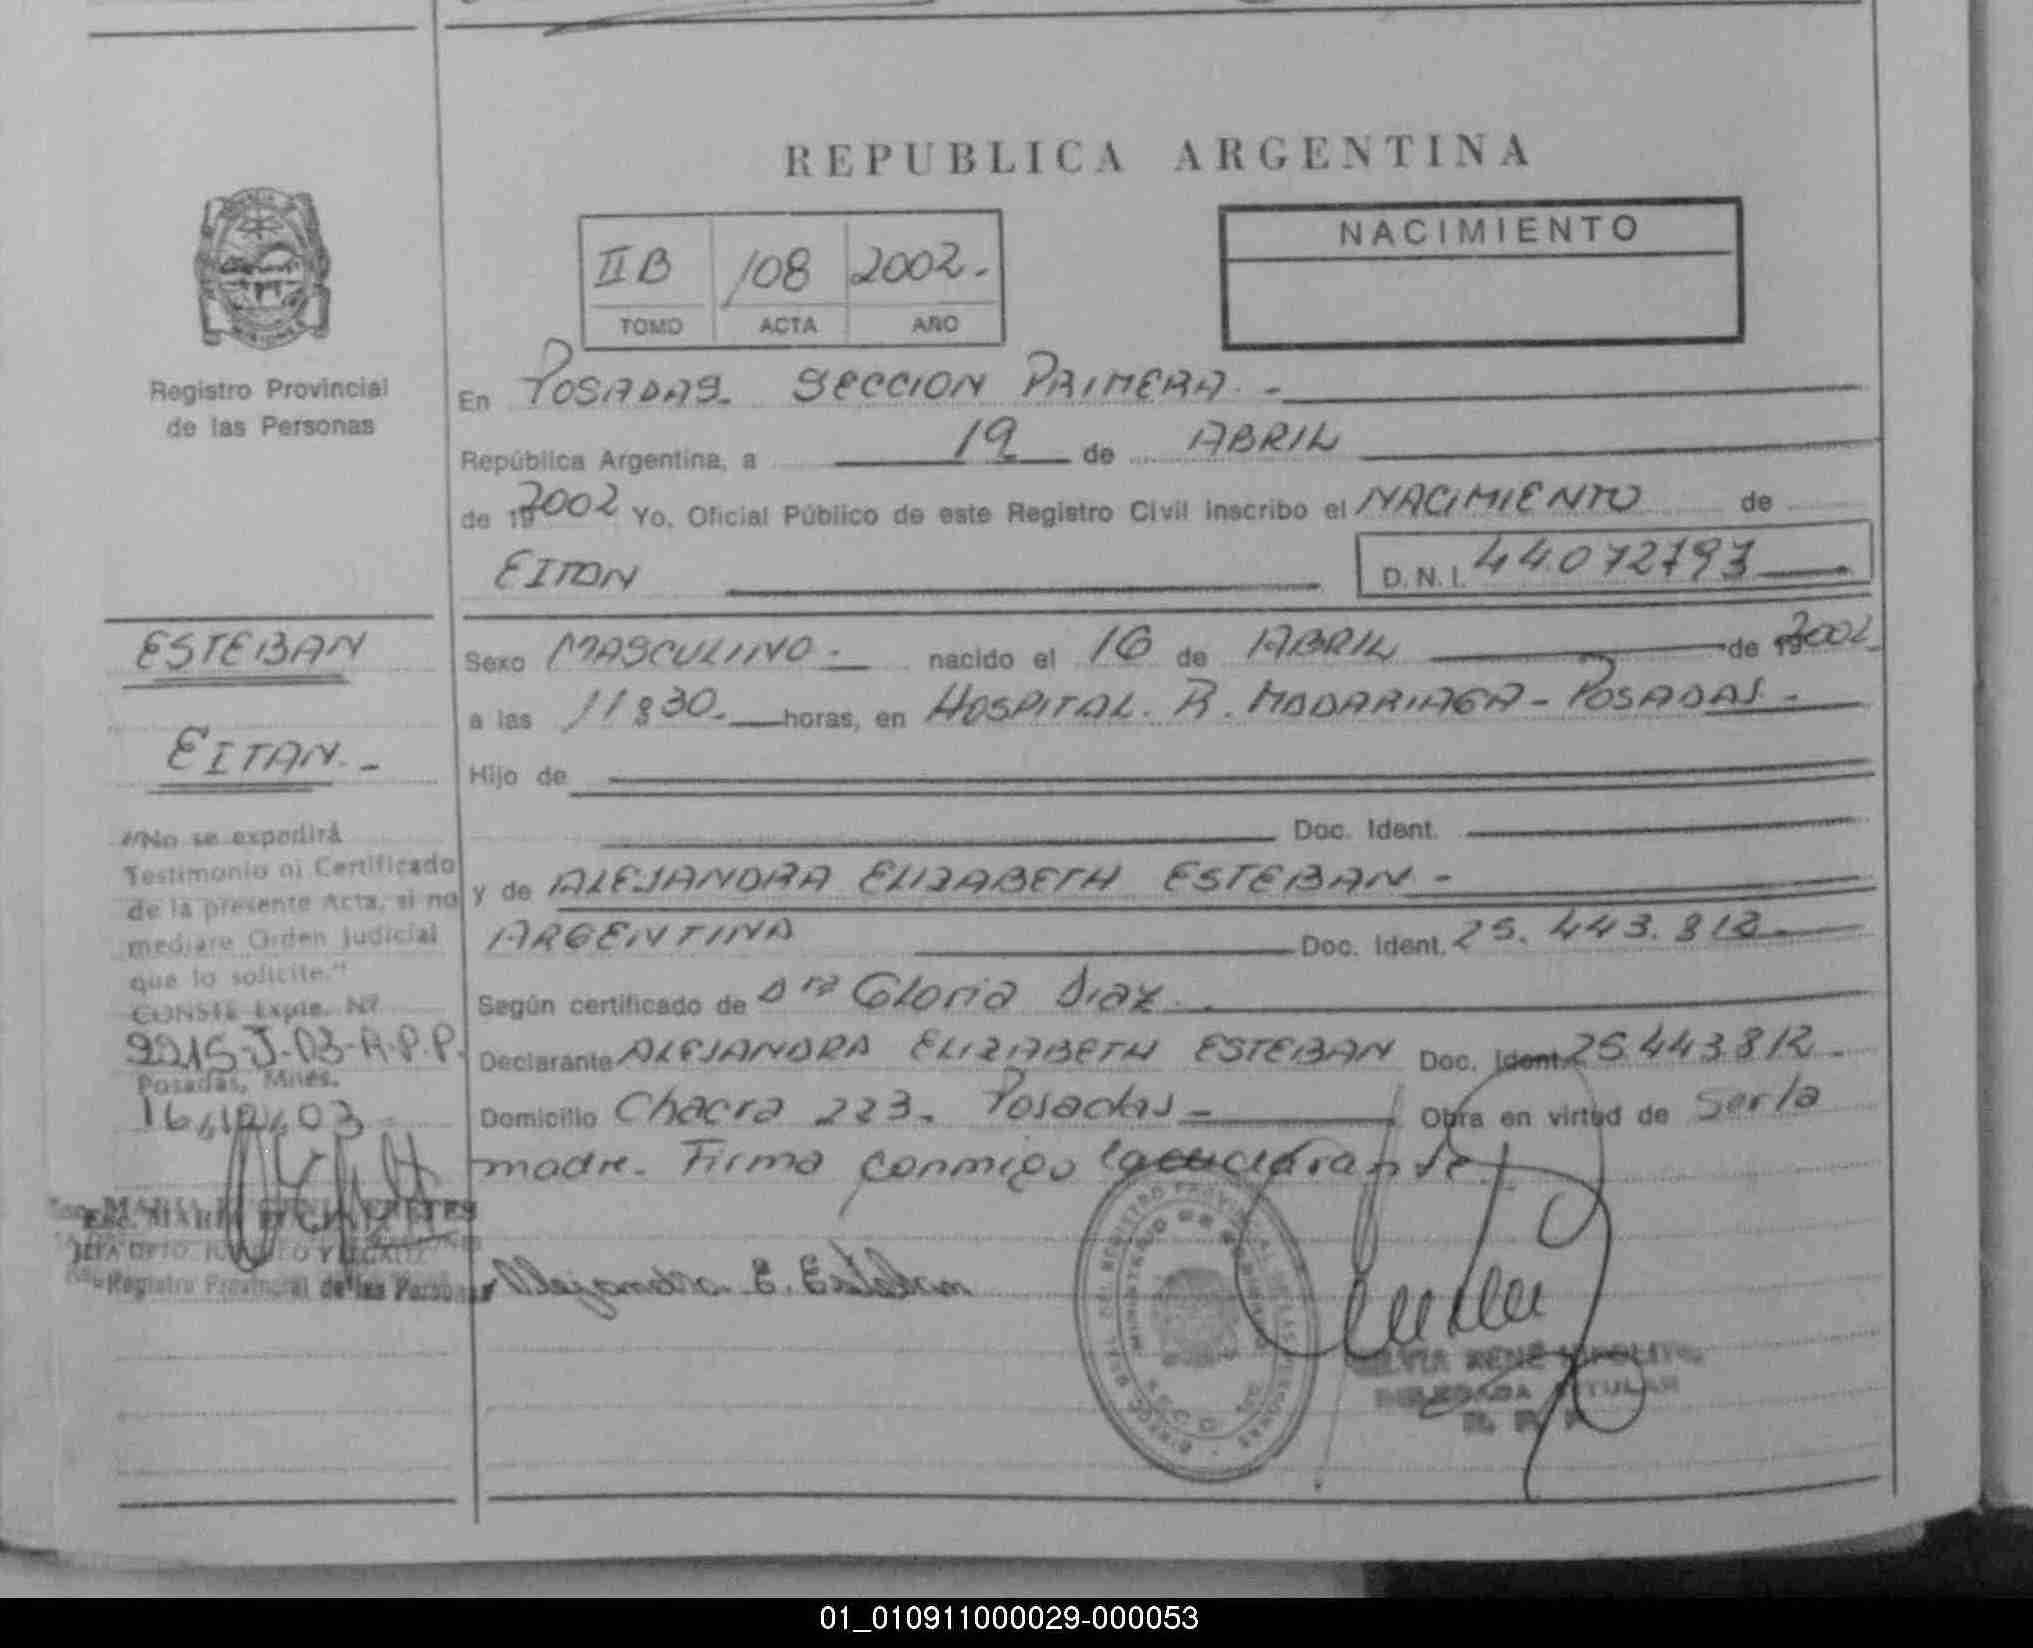 REPUBLICA ARGENTINA
NACIMIENTO
II B /08 2002.-
TOMO ACTA AÑO
Registro Provincial
de las Personas
En POSADAS. SECCION PRIMERA.-
República Argentina, a 19 de ABRIL
de 192002 Yo, Oficial Público de este Registro Civil inscribo el NACIMIENTO de
EITAN D.N.I. 44.072793
ESTEBAN
EITAN.-
Sexo MASCULINO.- nacido el 16 de ABRIL de 192002
a las 11:30.- horas, en HOSPITAL. R. MADARIAGA - POSADAS.-
Hijo de
Doc. Ident.
y de ALEJANDRA ELIZABETH ESTEBAN -
ARGENTINA Doc. Ident. 25.443.812
Según certificado de Dra Gloria Diaz.
Declarante ALEJANDRA ELIZABETH ESTEBAN Doc. Ident. 25.443.812.-
Domicilio Chacra 223. Posadas.- Obra en virtud de Ser la
madre. Firma conmigo la
"No se expedirá
Testimonio ni Certificado
de la presente Acta, si no
mediare Orden Judicial
que lo solicite."
CONSTE Expte. Nº
9215-J-03-R.P.P.
Posadas, Mnes.
16,12,03
Registro Provincial de las Personas
Alejandra E. Esteban
DELEGADA TITULAR
01_010911000029-000053